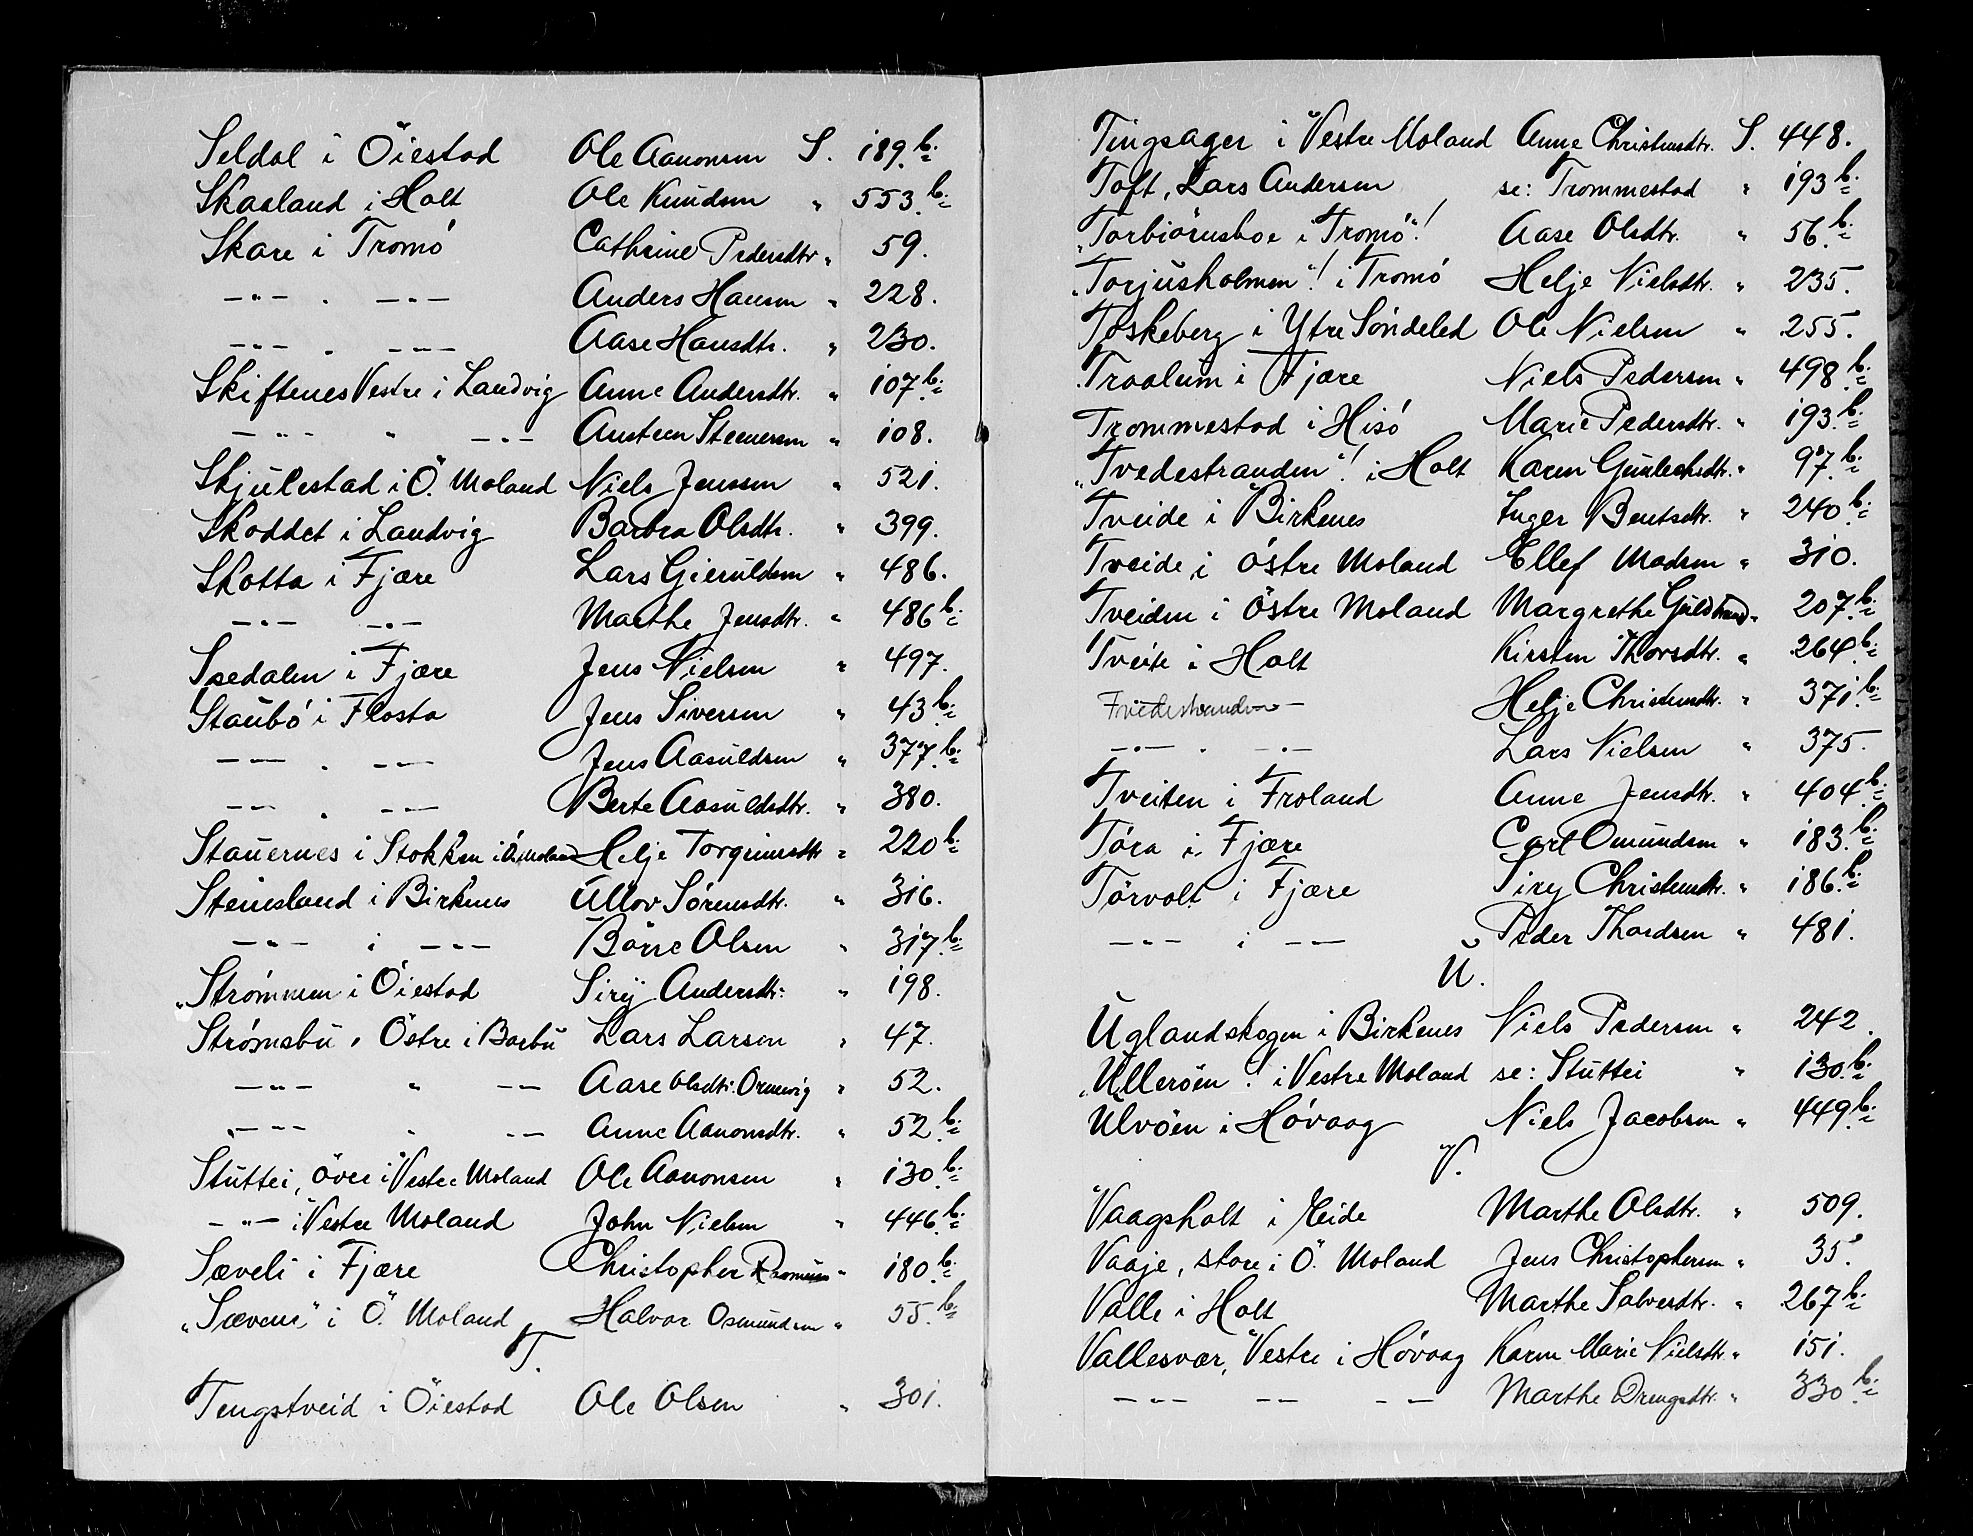 Seldal i Öiestad Ole Aanonsen S. 189.b.
Skaaland i Holt Ole Knudsen " 553.b.
Skare i Tromö Cathrine Pedersdtr. " 59.
—"— . —"— Anders Hansen " 228.
—"— . —"— Aase Hansdtr. " 230.
Skiftenes Vestre i Landvig Anne Andersdtr. " 107.b.
—"— " —"— Austeen Steenersen " 108.
Skjulestad i Ö. Moland Niels Jenssen " 521.
Skoddet i Landvig Barbra Olsdtr. " 399.
Skotta i Fjære Lars Gieruldsen " 486.
—"— —"— Marthe Jensdtr. " 486 b.
Spedalen i Fjære Jens Nielsen " 497.
Staubö i Flosta Jens Siversen " 43.b.
—"— . —"— Jens Aasuldsen " 377.b.
—"— . —"— Berte Aasuldsdtr. " 380.
Stauernes i Stokken i Ö. Moland Helje Torgrimsdtr " 220 b.
Steinsland i Birkenes Ullov Sörensdtr. " 316.
—"— i —"— Börre Olsen " 317.b.
"Strömmen i Öiestad Sirij Andersdtr: " 198.
Strömsbu, Östre i Barbu Lars Larsen " 47.
—"— " —"— Aase Olsdtr: Ornevig " 52.
—"— " —"— Anne Aanonsdtr. " 52.b.
Stuttei, övre i Vestre Moland Ole Aanonsen " 130.b.
—"— i Vestre Moland John Nielsen " 446.b.
Sæveli i Fjære Christopher Rasmussen " 180.b.
"Sævene" i Ö. Moland Halvor Osmundsen " 55.b.
T.
Tengstveid i Öiestad Ole Olsen " 301.
Tingsager i Vestre Moland Anne Christensdtr. S. 448.
Toft, Lars Andersen se: Trommestad " 193 b.
"Torbiörnsboe i Tromö"! Aase Olsdtr. " 56.b.
"Torjusholmen"! i Tromö Helje Nielsdtr. " 235.
Toskeberg i Ytre Söndeled Ole Nielsen " 255.
Traalum i Fjære Niels Pedersen " 498 b.
Trommestad i Hisö Marie Pedersdtr. " 193.b.
"Tvedestranden"! i Holt Karen Gunleksdtr. " 97.b.
Tveide i Birkenes Inger Bentsdtr. " 240.b.
Tveide i Östre Moland Ellef Madsen " 310.
Tveiden i Östre Moland Margrethe Guldbrand " 207.b.
Tveite i Holt Kirsten Thorsdtr. " 264.b.
Tvedestranden — Helje Christensdtr. " 371.b.
—"— . —"— Lars Nielsen " 375.
Tveiten i Froland Anne Jensdtr. " 404.b.
Töra i Fjære Carl Omundsen " 183.b.
Törvolt i Fjære Siry Christensdtr. " 186.b.
—"— i —"— Peder Thordsen " 481.
U.
Uglandskogen i Birkenes Niels Pedersen " 242.
"Ulleröen"! i Vestre Moland se: Stuttei " 130.b.
Ulvöen i Hövaag Niels Jacobsen " 449.b.
V.
Vaagsholt i Eide Marthe Olsdtr. " 509.
Vaaje, store i Ö. Moland Jens Christophersen " 35.
Valle i Holt Marthe Salvesdtr. " 267 b.
Vallesvær, Vestre i Hövaag Karen Marie Nielsdtr. " 151.
—"— —"— —"— Marthe Drengsdtr. " 330.b.